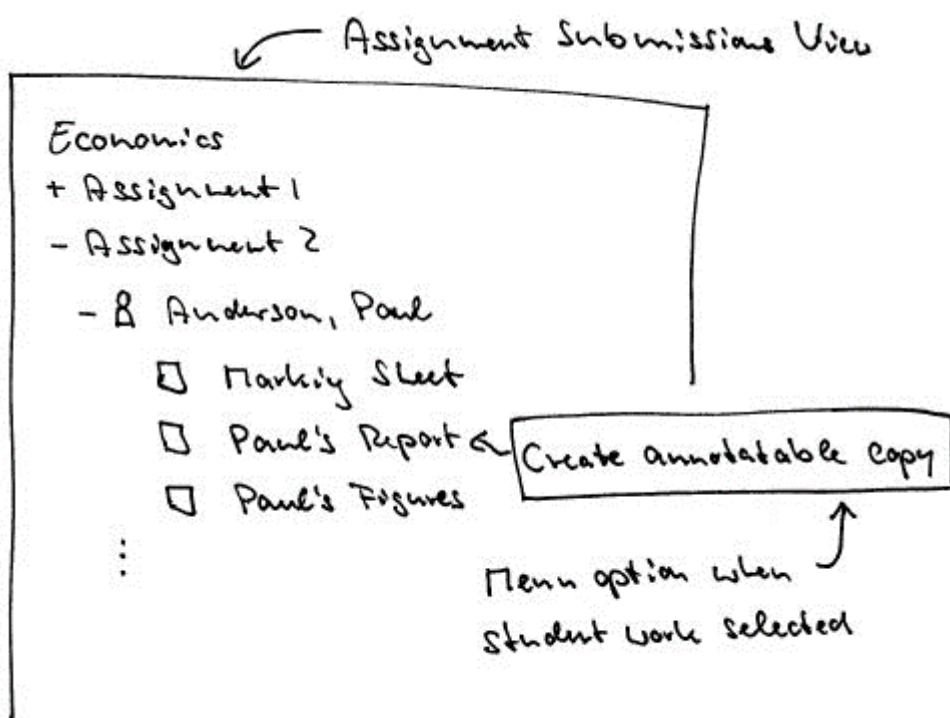 Assignment Submissions View
Economics
+ Assignment 1
- Assignment 2
- Anderson, Paul
Marking Sheet
Paul's Report
Create annotatable copy
Paul's Figures
⋮
Menu option when
student work selected